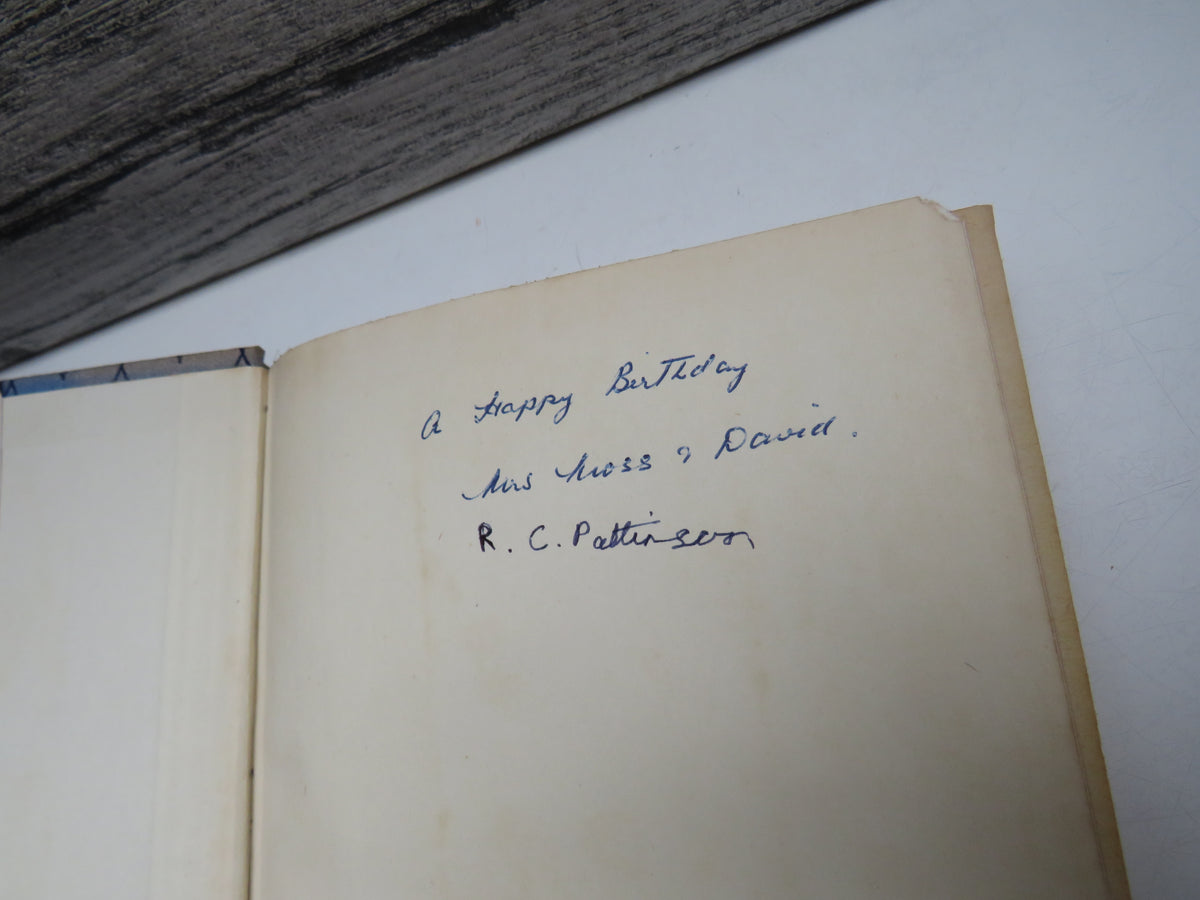 A Happy Birthday
Mrs Moss & David.
R. C. Pattinson